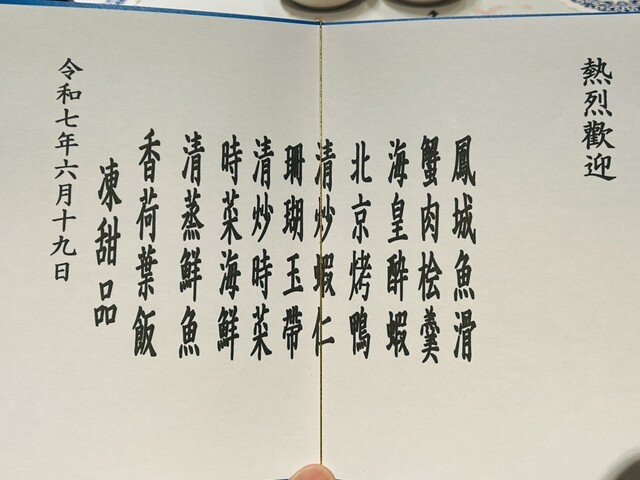 熱烈歡迎
鳳城魚滑
蟹肉桧羹
海皇酔蝦
北京烤鴨
清炒蝦仁
珊瑚玉帶
清炒時菜
時菜海鮮
清蒸鮮魚
香荷葉飯
凍甜品
令和七年六月十九日